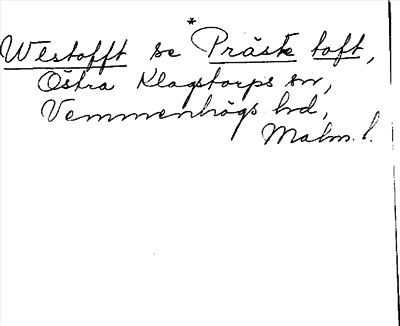 Westofft se *Präste toft,
Östra Klagstorps sn,
Vemmenhögs hd,
Malm. l.